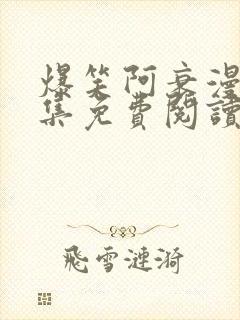 爆笑阿衰漫
集免費閱讀
飛雪漣漪